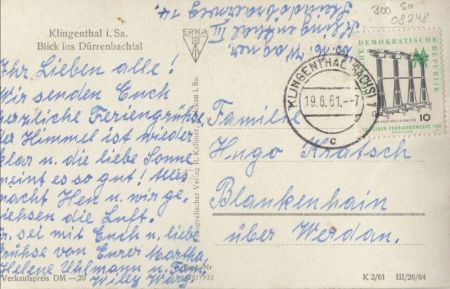 Klingenthal i. Sa.
Blick ins Dürrenbachtal
Ihr Lieben alle!
Wir senden Euch
herzliche Feriengrüße
der Himmel ist wieder
klar u. die liebe Sonne
meint es so gut! Alles
macht Heu u. wir ge-
niessen die Luft.
sei mit Euch u. liebe
Grüße von Eurer Martha,
Helene Uhlmann u. Fam.
Willy Ward
Verkaufspreis DM -.20
ERKA
i. Sa.
Klingenthal III
14.
300 Sa
08248
KLINGENTHAL (SACHS) 1
19.6.61.-7
c
DEMOKRATISCHE
REPUBLIK
10
Familie
Hugo Kratsch
Blankenhain
über Werdau.
K 2/61 III/26/64